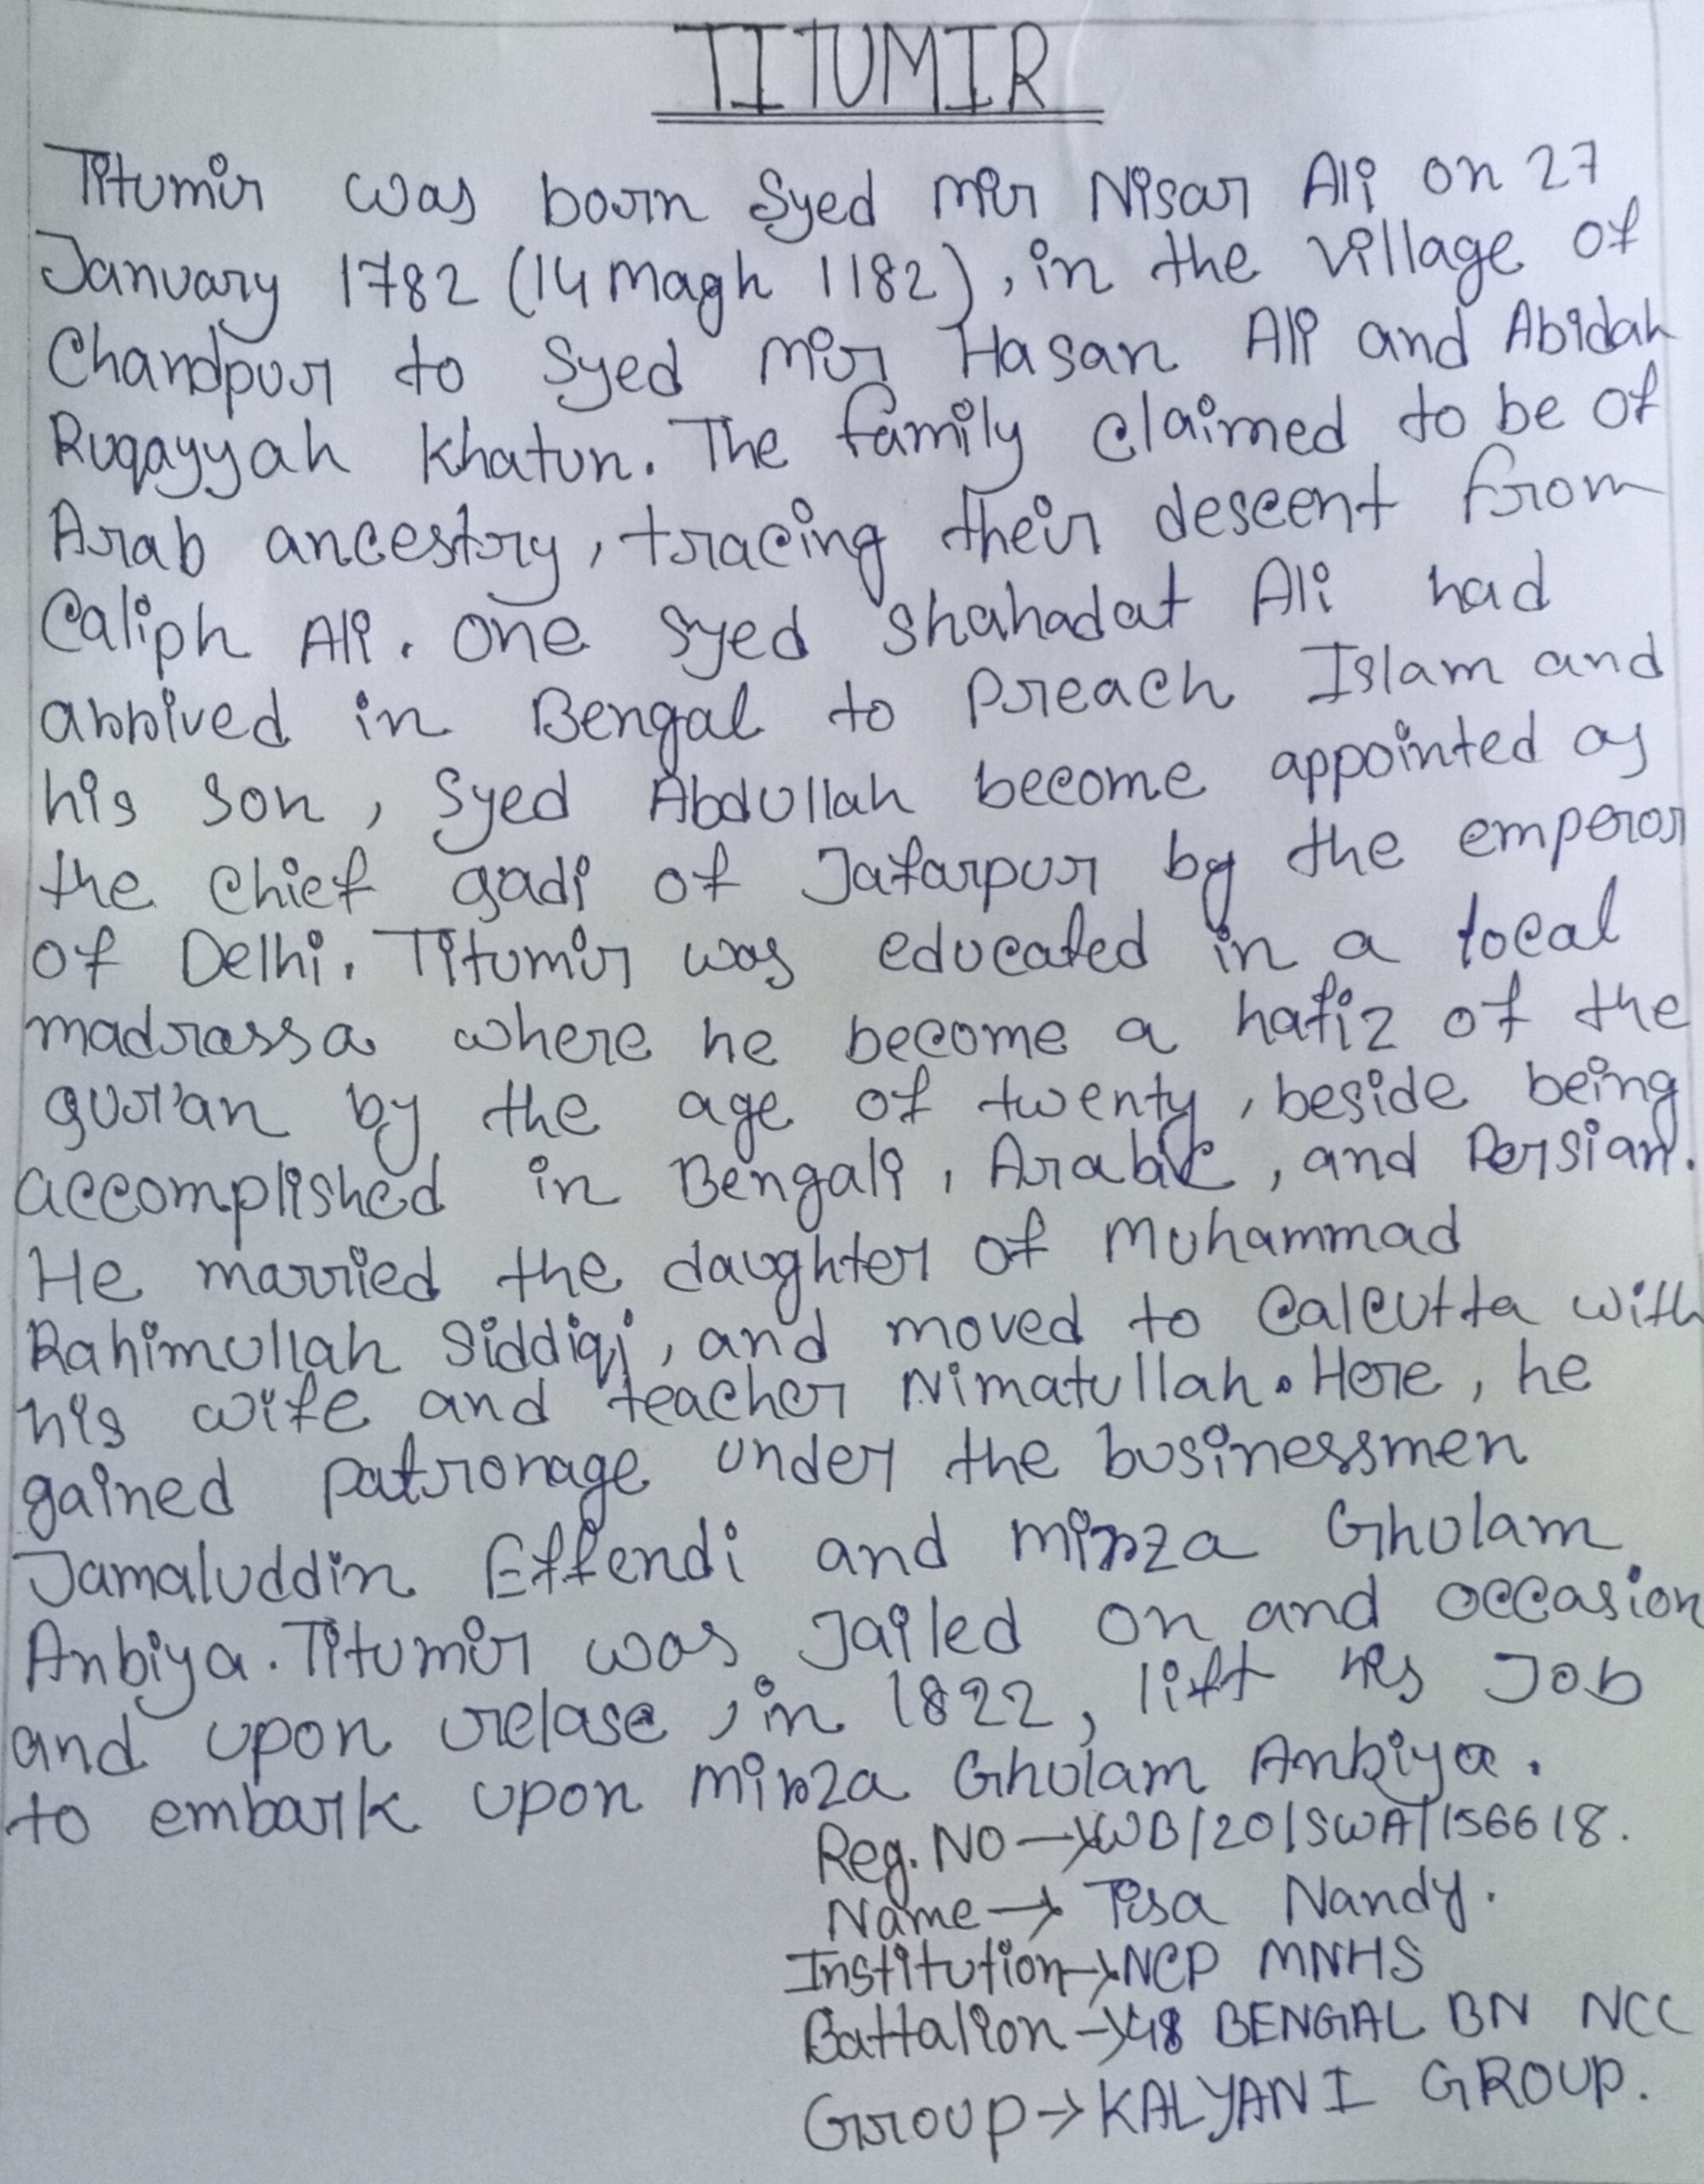 TITUMIR
Titumir was born Syed Mir Nisar Ali on 27
January 1782 (14 Magh 1182), in the village of
Chandpur to Syed Mir Hasan Ali and Abidah
Ruqayyah Khatun. The family claimed to be of
Arab ancestry, tracing their descent from
Caliph Ali. One Syed Shahadat Ali had
arrived in Bengal to Preach Islam and
his son, Syed Abdullah become appointed as
the chief gadi of Jafarpur by the emperor
of Delhi. Titumir was educated in a local
madrassa where he become a hafiz of the
qur'an by the age of twenty, beside being
accomplished in Bengali, Arabic, and Persian.
He married the daughter of Muhammad
Rahimullah Siddiqi, and moved to Calcutta with
his wife and teacher Nimatullah. Here, he
gained patronage under the businessmen
Jamaluddin Effendi and Mirza Gholam
Anbiya. Titumir was Jailed on and occasion
and upon relase, in 1822, lift his Job
to embark upon Mirza Gholam Anbiya.
Reg. NO → WB/20/SWA/156618.
Name → Tisa Nandy.
Institution → NCP MNHS
Battalion → 48 BENGAL BN NCC
Group → KALYANI GROUP.